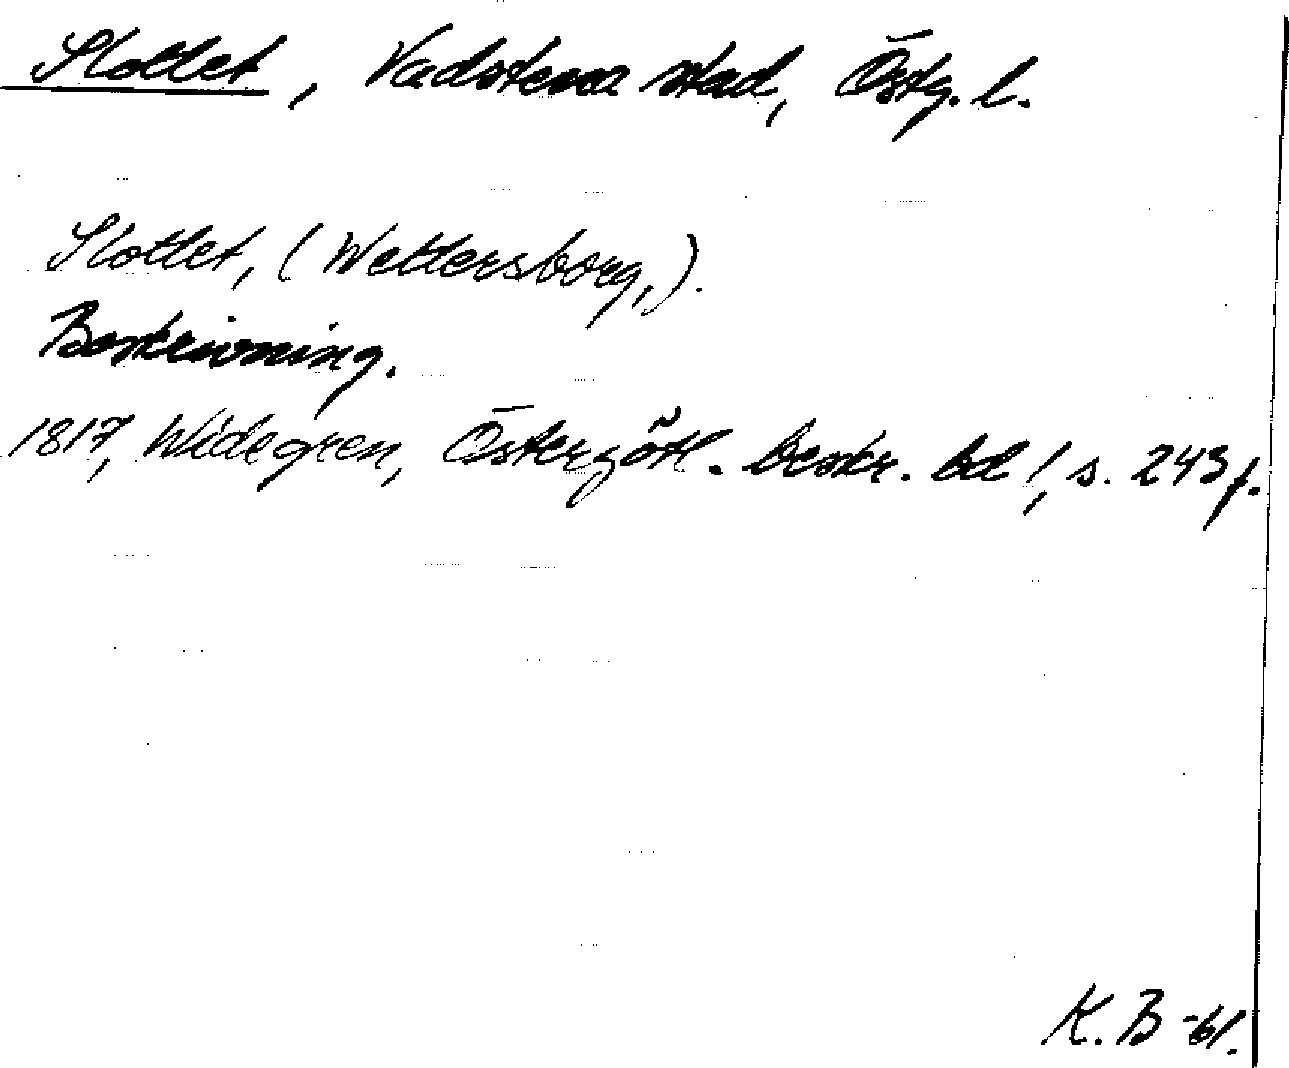 Slottet, Vadstena stad, Östg. l.
Slottet, (Wettersborg,).
Beskrivning.
1817, Widegren, Östergötl. beskr. bd 1, s. 243 f.
K. B -61.